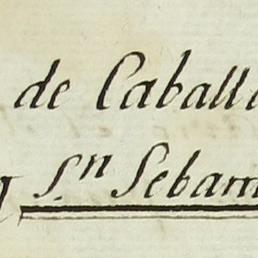 de Caball
S.n Sebam